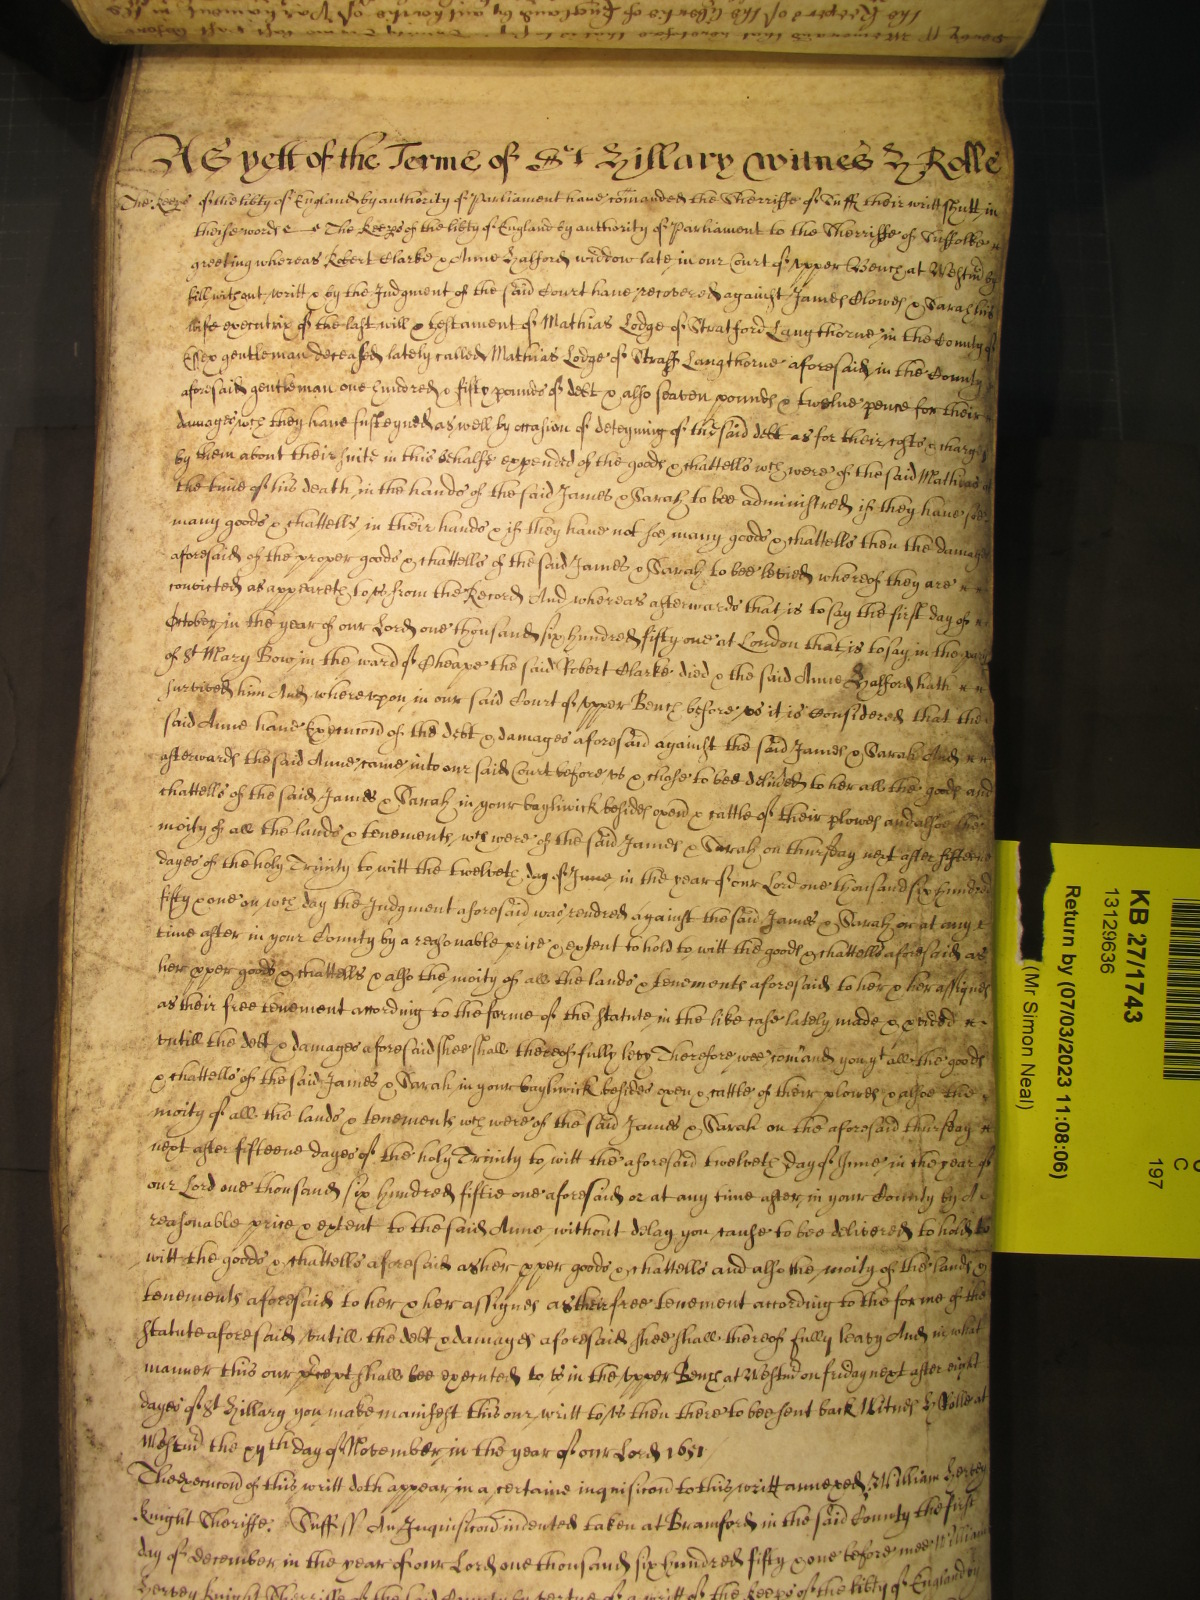 the Keepers of the liberties of England by authoritie of Parliament in the
As yett of the Terme of St Hillary witnes H Rolle
The Keeps of the libty of England by authority of Parliament have comanded the Sherriffe of Suff their writt shutt in
theise words The Keeps of the libty of England by authority of Parliament to the Sherriffe of Suffolke
greeting whereas Robert Clarke & Anne Halford widdow late in our Court of upper Bench at Westmr by
bill without writt & by the Judgment of the said Court have recovered against James Clowes & Sarah his
wife executrix of the last will & testament of Mathias Lodge of Stratford Langthorne in the County of
Essex gentleman deceased lately called Mathias Lodge of Straff Langthorne aforesaid in the County
aforesaid gentleman one hundred & fifty pounds of debt & also seaven pounds & twelve pence for their
damages wch they have susteyned as well by occasion of deteyning of the said debt as for their costs & charges
by them about their suite in this behalfe expended of the goods & chattells wch were of the said Mathias at
the time of his death in the hands of the said James & Sarah to bee administred if they have soe
many goods & chattells in their hands & if they have not soe many goods & chattells then the damages
aforesaid of the proper goods & chattells of the said James & Sarah to bee levied whereof they are
convicted as appeareth to us from the Record And whereas afterwards that is to say the first day of
October in the year of our Lord one thousand six hundred fifty one at London that is to say in the parish
of St Mary Bow in the ward of Cheape the said Robert Clarke died & the said Anne Halford hath
survived him And whereupon in our said Court of upper Bench before us it is Considered that the
said Anne have Execucond of the debt & damages aforesaid against the said James & Sarah And
afterwards the said Anne came into our said Court before us & chose to bee delivered to her all the goods and
chattells of the said James & Sarah in your bayliwick besides oxen & cattle of their plowes and alsoe the
moity of all the lands & tenements wch were of the said James & Sarah on thursday next after fifteene
dayes of the holy Trinity to witt the twelveth day of June in the year of our Lord one thousand six hundred
fifty & one on wch day the Judgment aforesaid was rendred against the said James & Sarah or at any
time after in your County by a reasonable price & extent to hold to witt the goods & chattells aforesaid as
her pper goods & chattells & also the moity of all the lands & tenements aforesaid to her & her assignes
as their free tenement according to the forme of the statute in the like case lately made & pvided
untill the debt & damages aforesaid shee shall thereof fully levy Therefore wee comand you yt all the goods
& chattells of the said James & Sarah in your bayliwick besides oxen & cattle of their plowes & alsoe the
moity of all the lands & tenements wch were of the said James & Sarah on the aforesaid thursday
next after fifteene dayes of the holy Trinity to witt the aforesaid twelveth day of June in the year of
our Lord one thousand six hundred fiftie one aforesaid or at any time after in your County by A
reasonable price & extent to the said Anne without delay you cause to bee delivered to hold to
witt the goods & chattells aforesaid as her pper goods & chattells and also the moity of the lands &
tenements aforesaid to her & her assignes as their free tenement according to the forme of the
statute aforesaid untill the debt & damages aforesaid shee shall thereof fully leavy And in what
manner this our precept shall bee executed to us in the upper Bench at Westmr on friday next after eight
dayes of St Hillary you make manifest this our writt to us then there to bee sent back Witnes H Rolle at
Westmr the xxth day of November in the year of our Lord 1651
The execucond of this writt doth appear in a certaine inquisicond to this writt annexed William Hervey
knight Sheriffe. Suff ss An Inquisicond indented taken at Bramford in the said County the first
day of december in the year of our Lord one thousand six hundred fifty & one before mee William
Hervey knight Sherriffe of the said County by vertue of a writt of the Keeps of the libty of England by
KB 27/1743
13129636
Return by (07/03/2023 11:08:06)
(Mr Simon Neal)
C
197